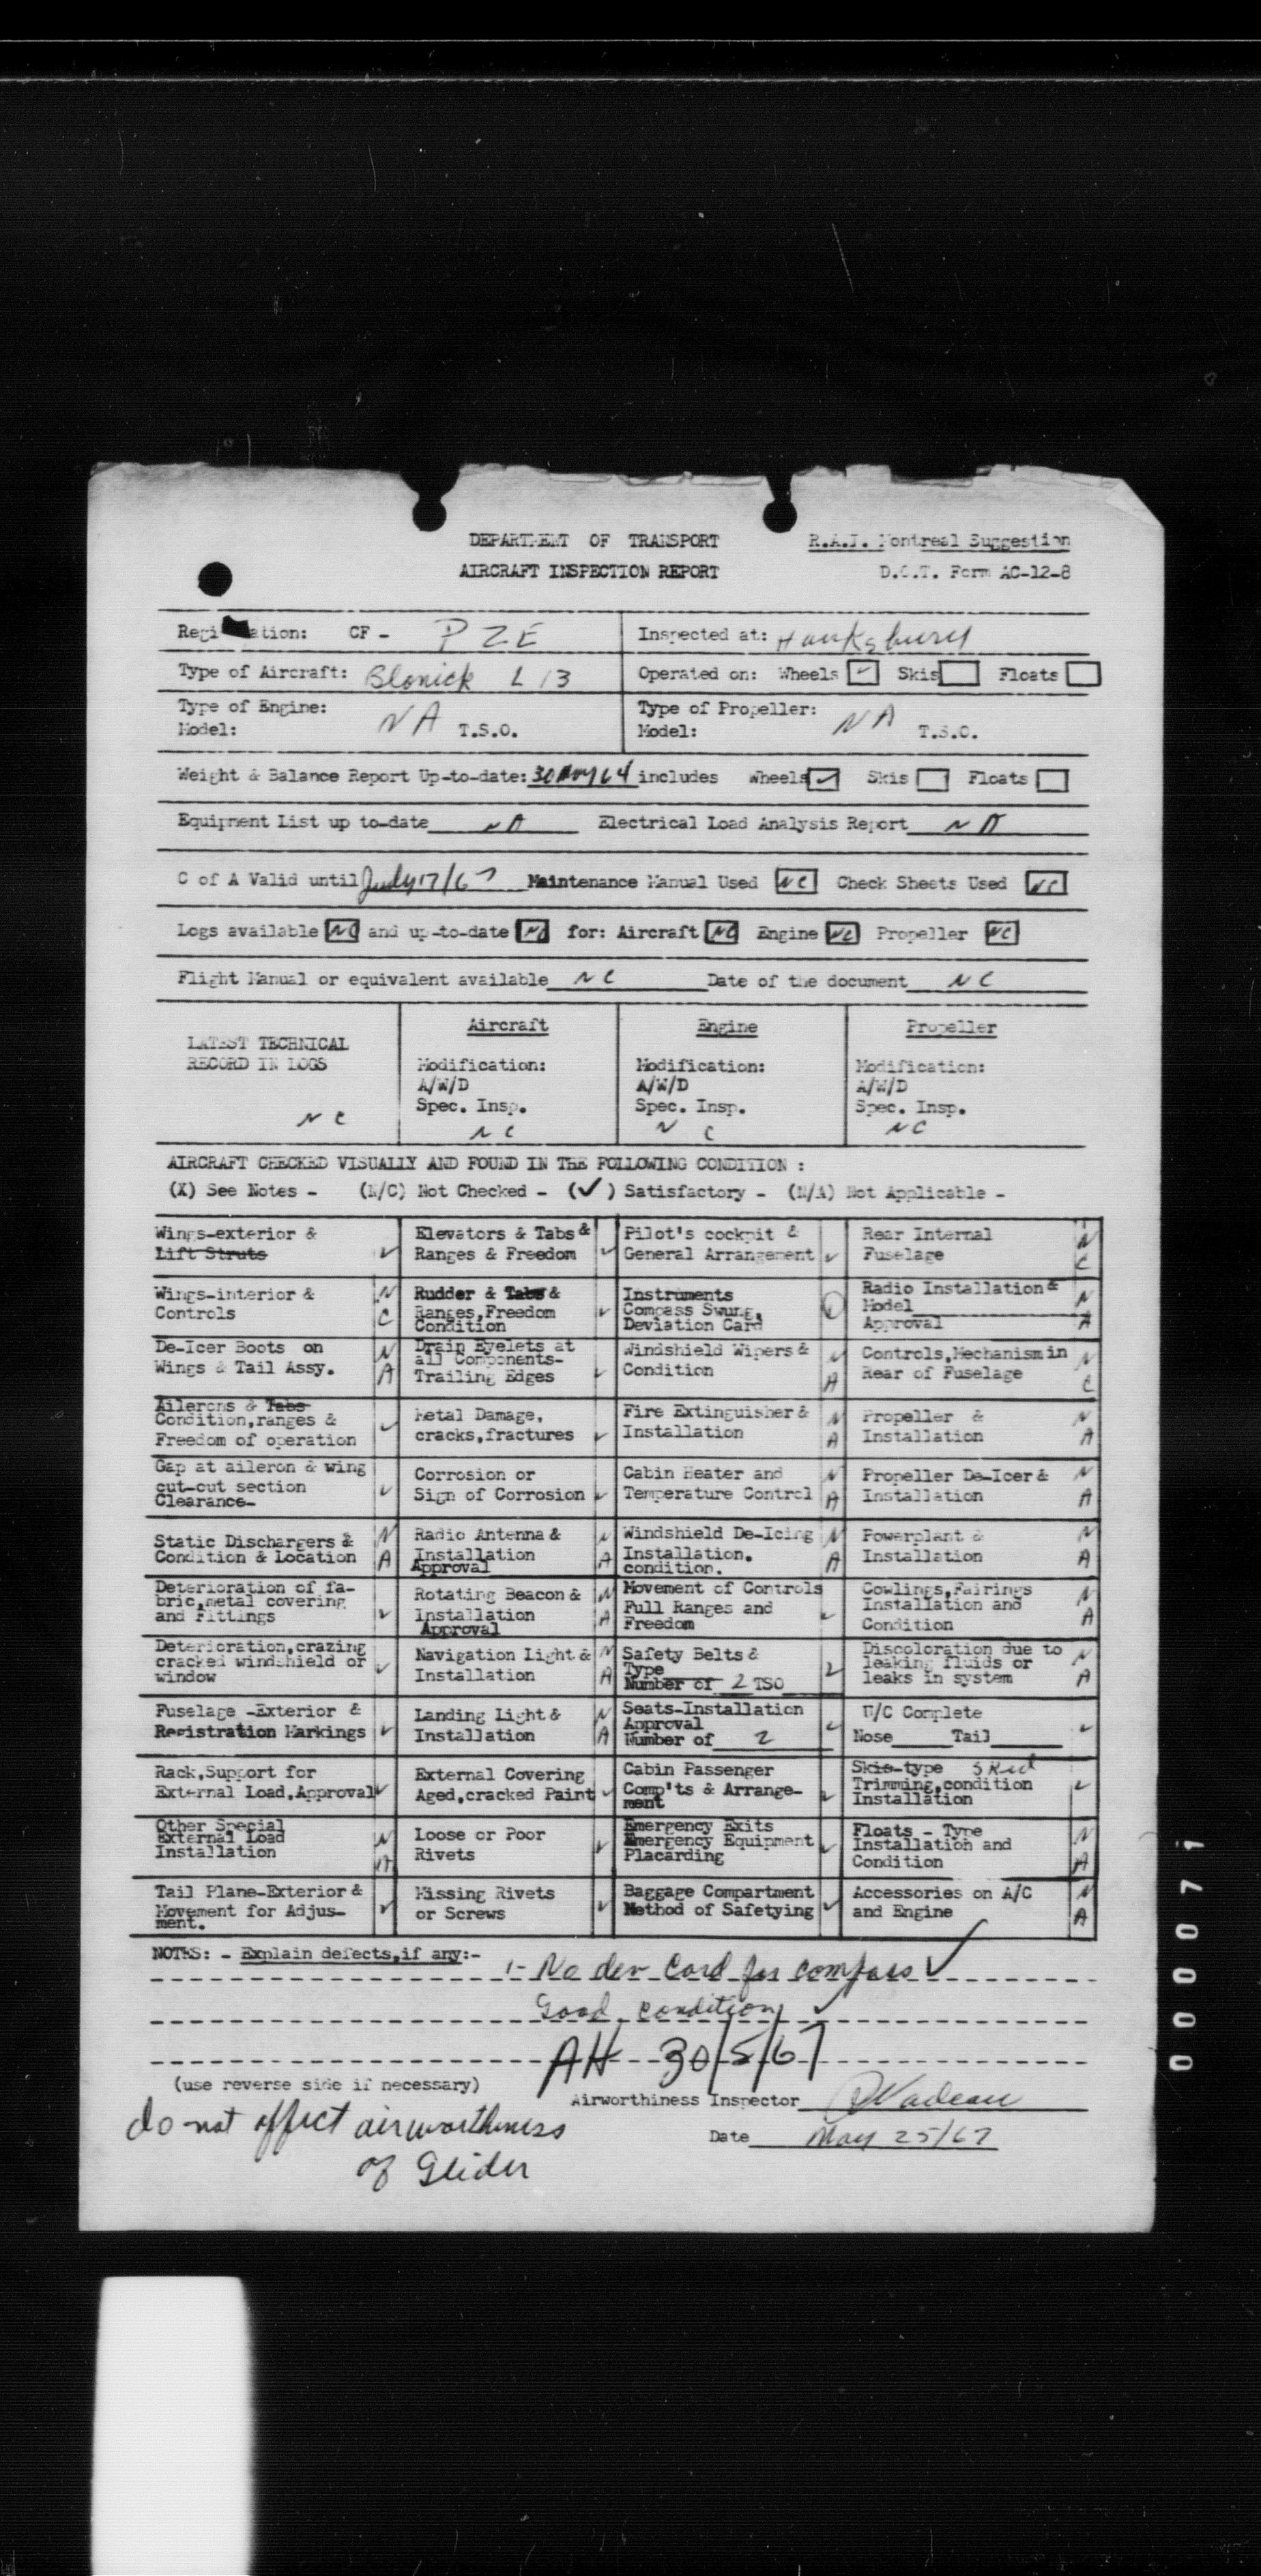 DEPARTMENT OF TRANSPORT R.A.I. Montreal Suggestion
AIRCRAFT INSPECTION REPORT D.O.T. Form AC-12-8
Regi ation: CF - PZE Inspected at: Hawksbury
Type of Aircraft: Blanick L 13 Operated on: Wheels ✓ Skis Floats
Type of Engine: Type of Propeller:
Model: NA T.S.O. Model: NA T.S.O.
Weight & Balance Report Up-to-date: 30 Nov 64 includes Wheels ✓ Skis Floats
Equipment List up to-date NA Electrical Load Analysis Report NA
C of A Valid until July 17/67 Maintenance Manual Used NC Check Sheets Used NC
Logs available NC and up-to-date NC for: Aircraft NC Engine NC Propeller NC
Flight Manual or equivalent available NC Date of the document NC
Aircraft Engine Propeller
LATEST TECHNICAL
RECORD IN LOGS Modification: Modification: Modification:
A/W/D A/W/D A/W/D
Spec. Insp. Spec. Insp. Spec. Insp.
NC NC NC NC
AIRCRAFT CHECKED VISUALLY AND FOUND IN THE FOLLOWING CONDITION :
(X) See Notes - (N/C) Not Checked - (✓) Satisfactory - (N/A) Not Applicable -
Wings-exterior & Elevators & Tabs & Pilot's cockpit & Rear Internal N
Lift Struts ✓ Ranges & Freedom ✓ General Arrangement ✓ Fuselage C
Wings-interior & N Rudder & Tabs & Instruments Radio Installation &
Controls C Ranges, Freedom ✓ Compass Swung, ① Model N
Condition Deviation Card Approval A
De-Icer Boots on N Drain Eyelets at Windshield Wipers & N Controls, Mechanism in N
Wings & Tail Assy. A all Components- Condition A Rear of Fuselage C
Trailing Edges ✓
Ailerons & Tabs Metal Damage, Fire Extinguisher & N Propeller & N
Condition, ranges & ✓ cracks, fractures ✓ Installation A Installation A
Freedom of operation
Gap at aileron & wing Corrosion or Cabin Heater and N Propeller De-Icer & N
cut-out section ✓ Sign of Corrosion ✓ Temperature Control A Installation A
Clearance-
Static Dischargers & N Radio Antenna & N Windshield De-Icing N Powerplant & N
Condition & Location A Installation A Installation. A Installation A
Approval condition.
Deterioration of fa- Rotating Beacon & N Movement of Controls Cowlings, Fairings N
bric, metal covering Installation A Full Ranges and ✓ Installation and A
and Fittings ✓ Approval Freedom Condition
Deterioration, crazing Navigation Light & N Safety Belts & Discoloration due to
cracked windshield or ✓ Installation A Type ✓ leaking fluids or N
window Number of 2 TSO leaks in system A
Fuselage -Exterior & Landing Light & N Seats-Installation U/C Complete
Registration Markings ✓ Installation A Approval ✓ Nose Tail ✓
Number of 2
Rack, Support for External Covering Cabin Passenger Skis-type Skid
External Load, Approval ✓ Aged, cracked Paint ✓ Comp'ts & Arrange- ✓ Trimming, condition ✓
ment Installation
Other Special Loose or Poor Emergency Exits Floats - Type N
External Load N Rivets ✓ Emergency Equipment ✓ Installation and A
Installation A Placarding Condition
Tail Plane-Exterior & Missing Rivets Baggage Compartment Accessories on A/C N
Movement for Adjus- ✓ or Screws ✓ Method of Safetying ✓ and Engine A
ment.
NOTES: - Explain defects, if any:-
1- No dev card for compass ✓
Good condition ✓
AH 30/5/67
(use reverse side if necessary)
Airworthiness Inspector Nadeau
do not affect airworthiness
Date May 25/67
of Glider
000071